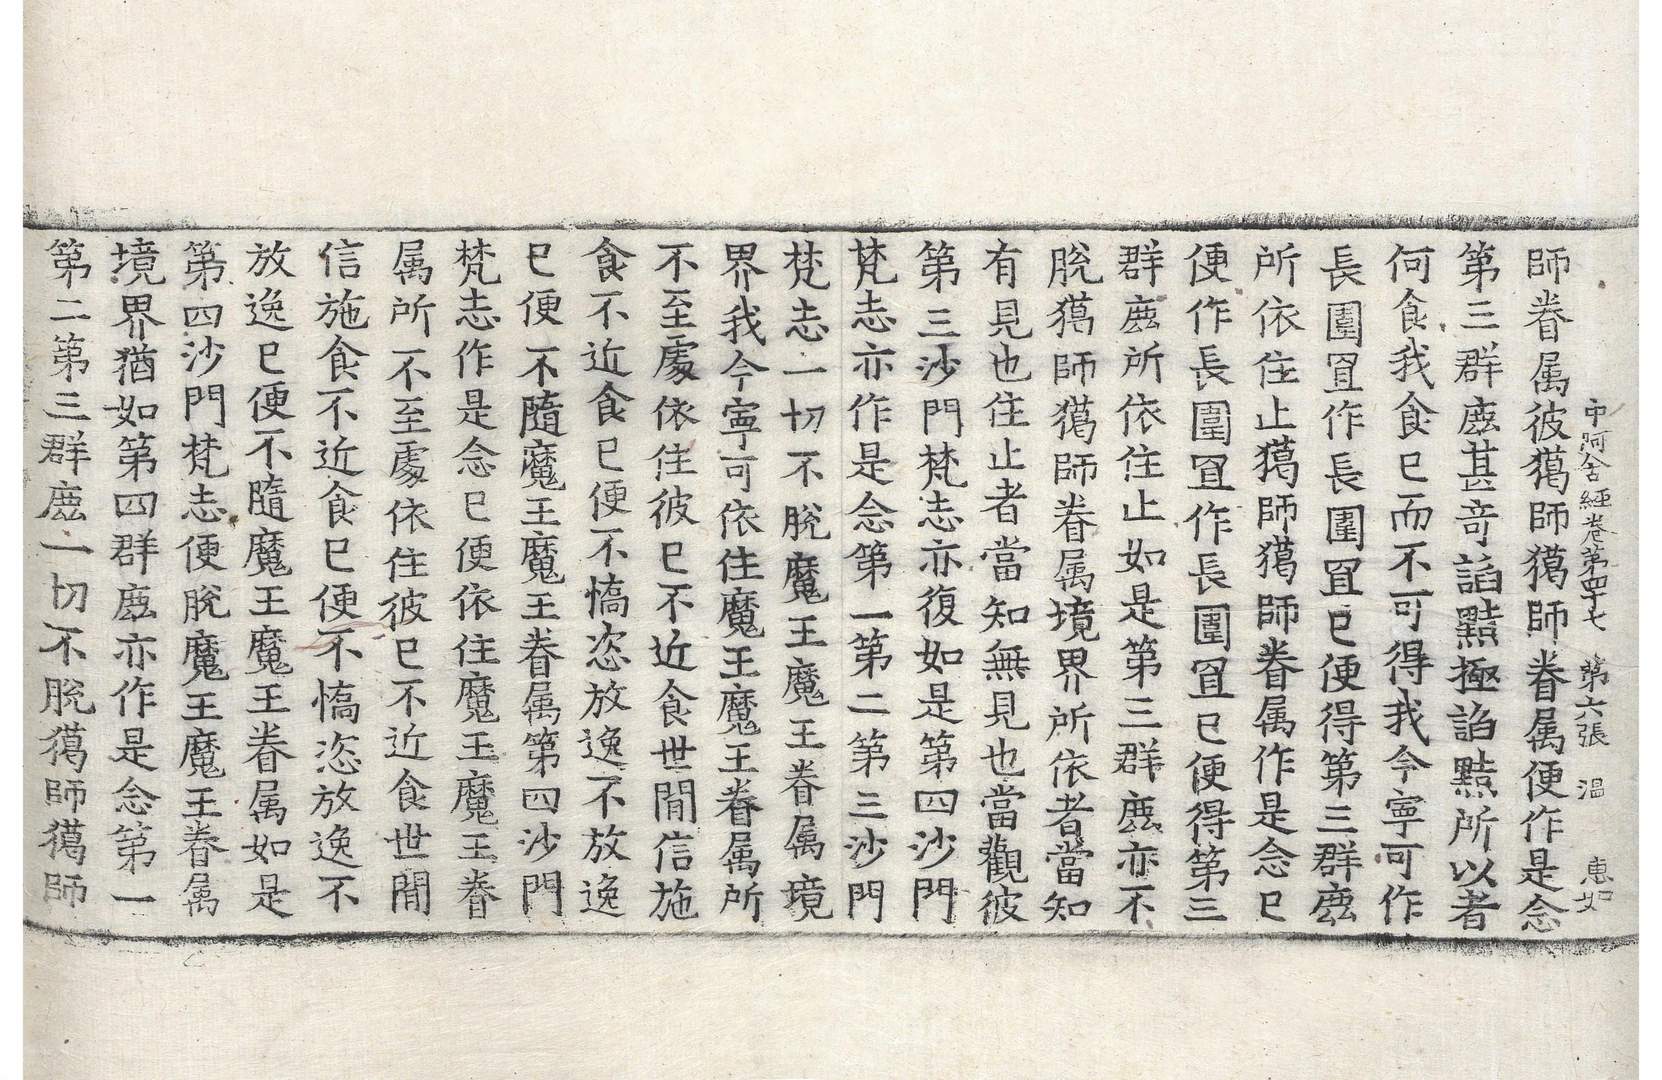 中阿含經卷第四十七 第六張 温 惠如
師眷属彼獦師獦師眷属便作是念
第三群鹿甚奇諂黠極諂黠所以者
何食我食已而不可得我今寧可作
長圍罝作長圍罝已便得第三群鹿
所依住止獦師獦師眷属作是念已
便作長圍罝作長圍罝已便得第三
群鹿所依住止如是第三群鹿亦不
脫獦師獦師眷属境界所依者當知
有見也住止者當知無見也當觀彼
第三沙門梵志亦復如是第四沙門
梵志亦作是念第一第二第三沙門
梵志一切不脫魔王魔王眷属境
界我今寧可依住魔王魔王眷属所
不至處依住彼已不近食世閒信施
食不近食已便不憍恣放逸不放逸
已便不隨魔王魔王眷属第四沙門
梵志作是念已便依住魔王魔王眷
属所不至處依住彼已不近食世閒
信施食不近食已便不憍恣放逸不
放逸已便不隨魔王魔王眷属如是
第四沙門梵志便脫魔王魔王眷属
境界猶如第四群鹿亦作是念第一
第二第三群鹿一切不脫獦師獦師